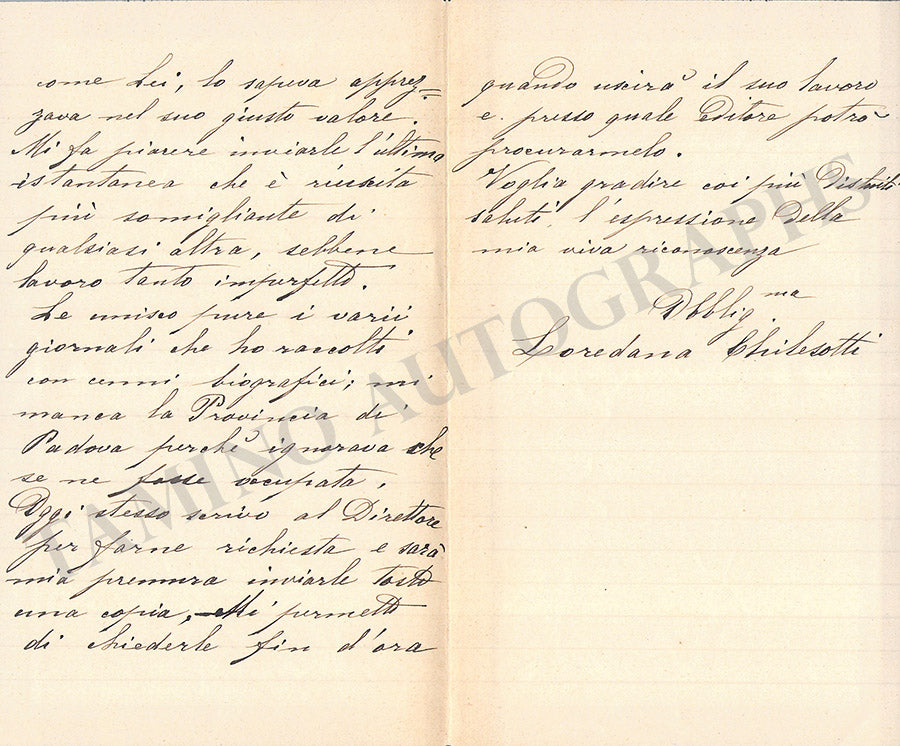 come Lei, lo sapeva apprez=
zava nel suo giusto valore.
Mi fa piacere inviarle l'ultima
istantanea che è riuscita
più somigliante di
qualsiasi altra, sebbene
lavoro tanto imperfetto.
Le unisco pure i varii
giornali che ho raccolti
con cenni biografici; mi
manca la Provincia di
Padova perchè ignorava che
se ne fosse occupata.
Oggi stesso scrivo al Direttore
per farne richiesta e sarà
mia premura inviarle tosto
una copia. Mi permetto
di chiederle fin d'ora
quando uscirà il suo lavoro
e presso quale Editore potrò
procurarmelo.
Voglia gradire coi più Distinti
saluti l'espressione della
mia viva riconoscenza
Obblig.ma
Loredana Chilesotti
TAMINO AUTOGRAPHS